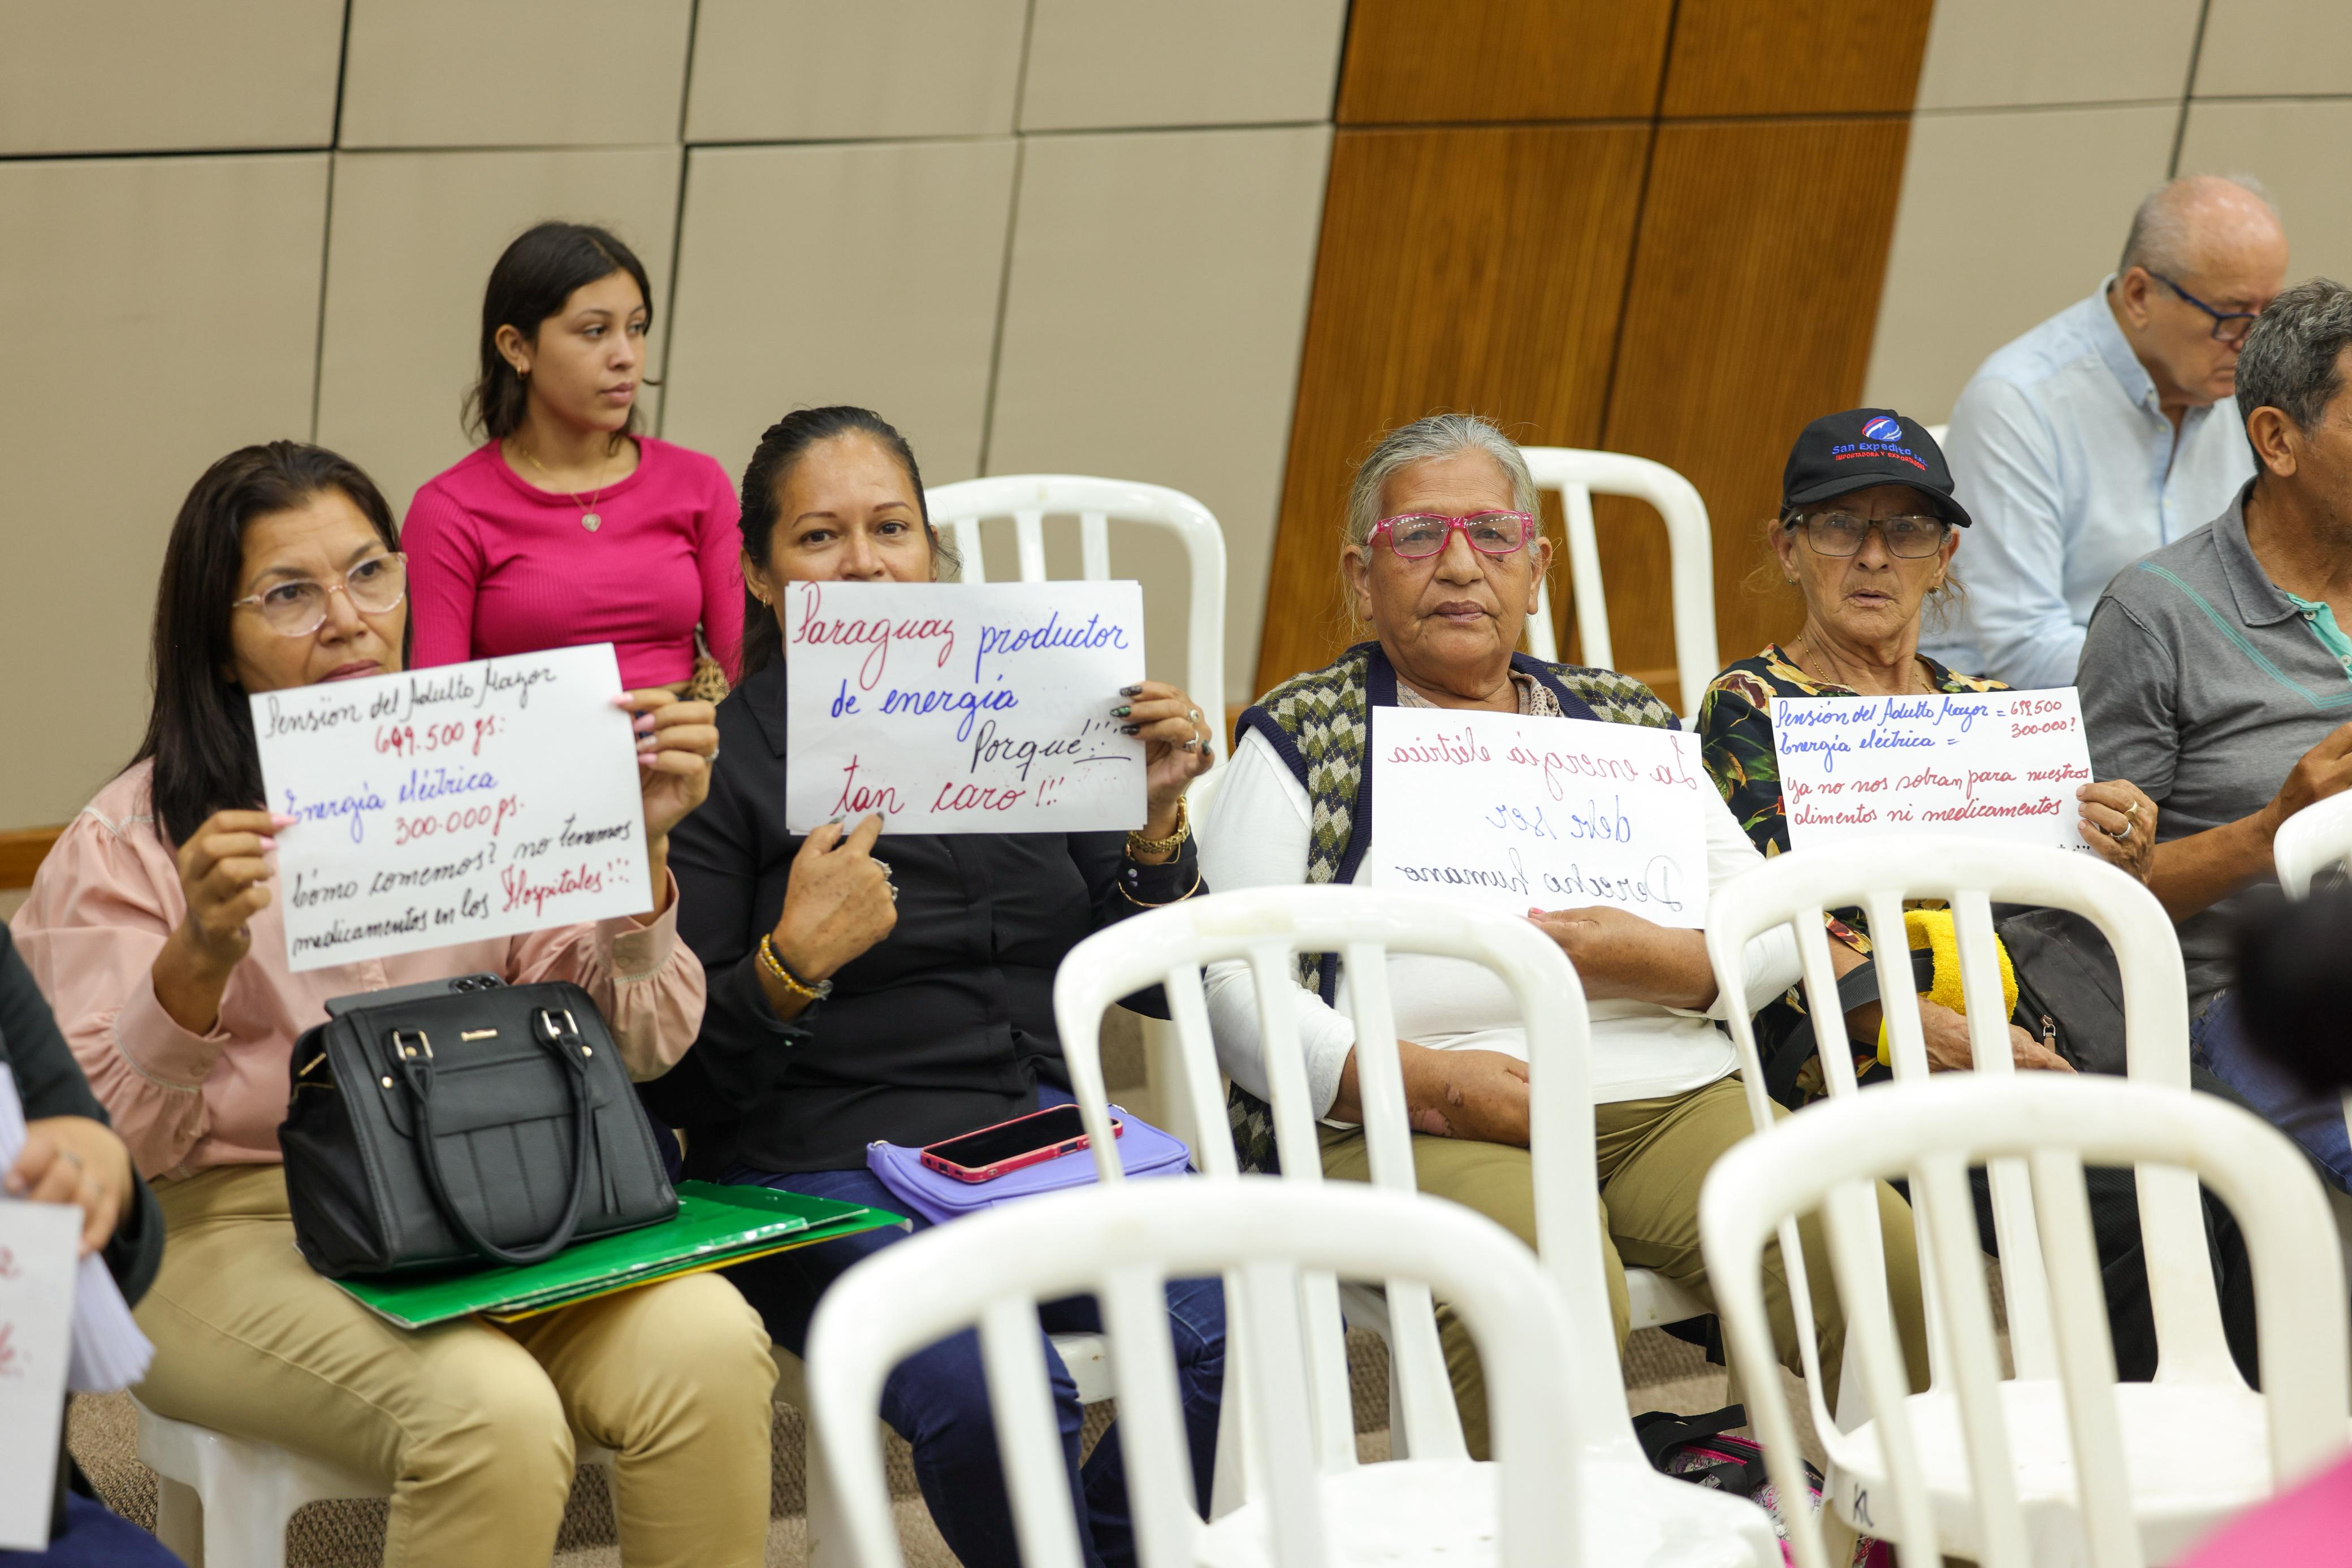 Pensión del Adulto Mayor
699.500 gs:
Energía eléctrica
300.000 gs.
Cómo comemos? no tenemos
medicamentos en los Hospitales!!!
Paraguay productor
de energía
Porqué!!!
tan caro!!!
La energía eléctrica
debe ser
Derecho humano
San Expedito
IMPORTADORA Y EXPORTADORA
Pensión del Adulto Mayor = 699.500
Energía eléctrica = 300.000?
Ya no nos sobran para nuestros
alimentos ni medicamentos